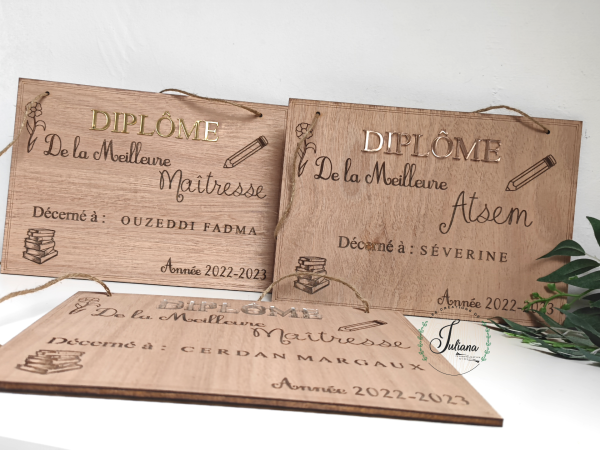 DIPLÔME
De la Meilleure
Maîtresse
Décerné à : OUZEDDI FADMA
Année 2022-2023
DIPLÔME
De la Meilleure
Atsem
Décerné à : SÉVERINE
Année 2022-2023
DIPLÔME
De la Meilleure
Maîtresse
Décerné à : CERDAN MARGAUX
Année 2022-2023
Juliana